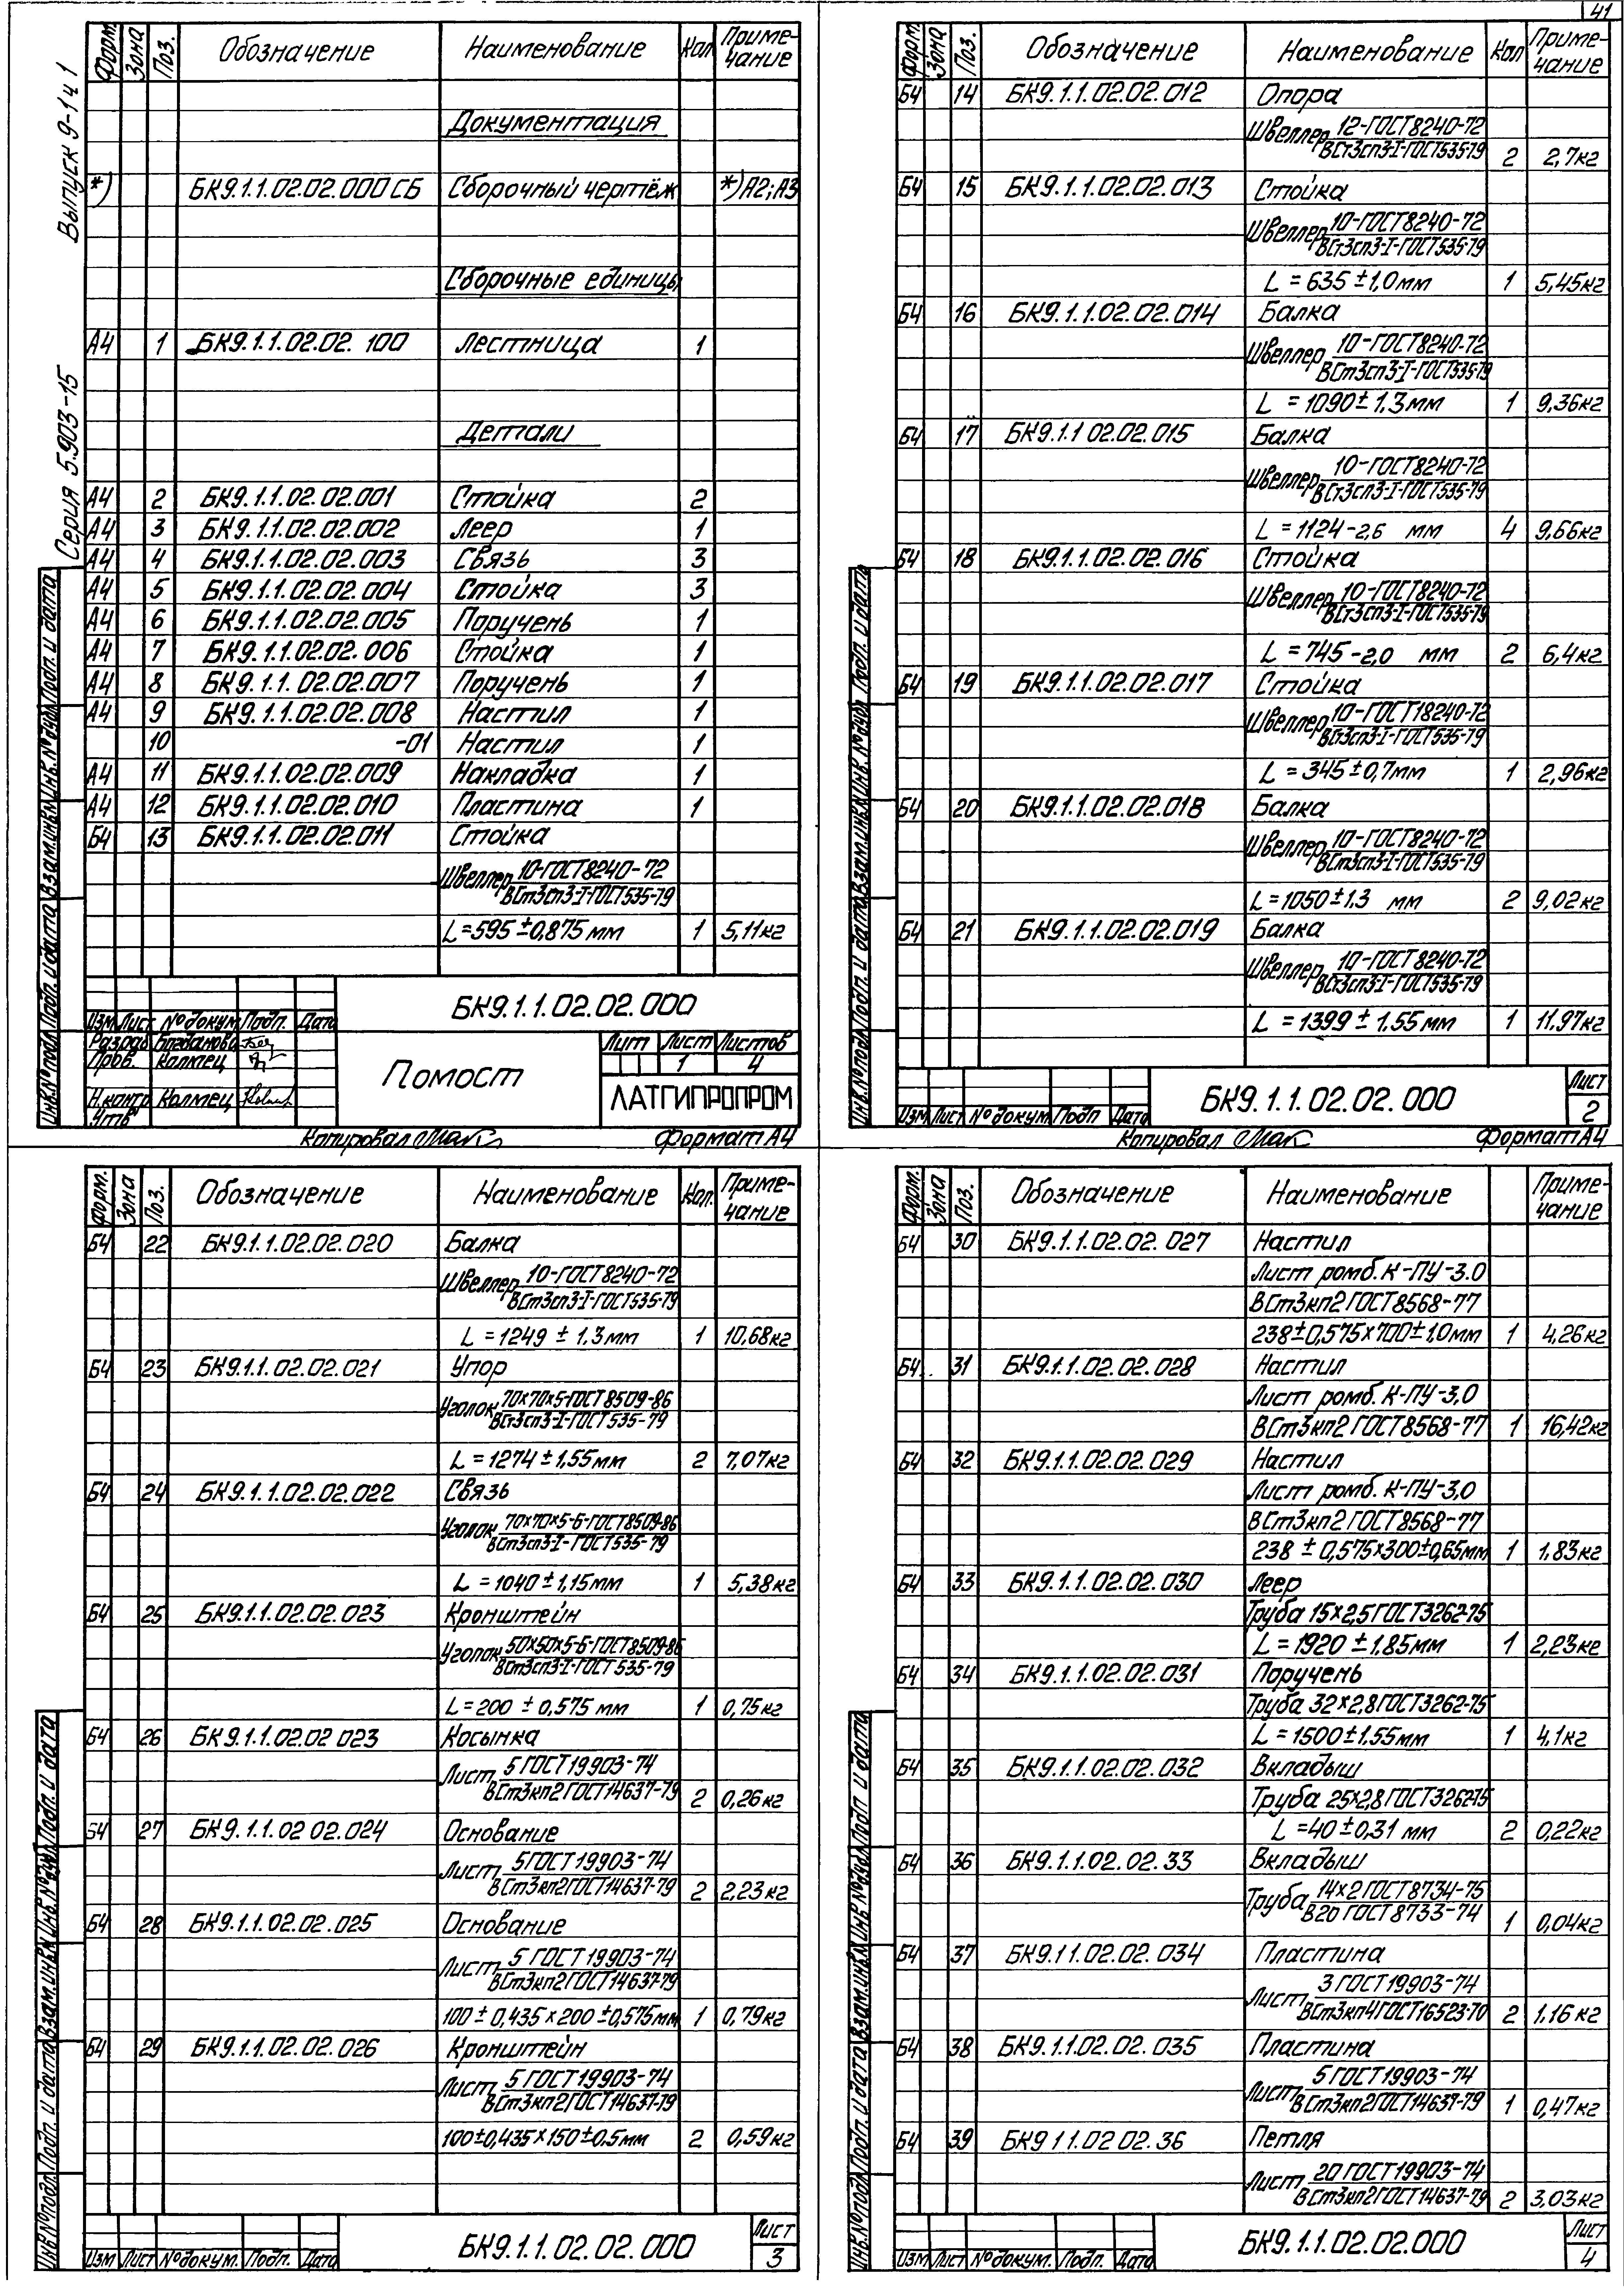 41
Серия 5.903-15 Выпуск 9-1 ч 1
Форм. Зона Поз. Обозначение Наименование Кол Приме-чание
Документация
*) БК9.1.1.02.02.000 СБ Сборочный чертёж *)А2;А3
Сборочные единицы
А4 1 БК9.1.1.02.02. 100 Лестница 1
Детали
А4 2 БК9.1.1.02.02.001 Стойка 2
А4 3 БК9.1.1.02.02.002 Леер 1
А4 4 БК9.1.1.02.02.003 Связь 3
А4 5 БК9.1.1.02.02.004 Стойка 3
А4 6 БК9.1.1.02.02.005 Поручень 1
А4 7 БК9.1.1.02.02.006 Стойка 1
А4 8 БК9.1.1.02.02.007 Поручень 1
А4 9 БК9.1.1.02.02.008 Настил 1
10 -01 Настил 1
А4 11 БК9.1.1.02.02.009 Накладка 1
А4 12 БК9.1.1.02.02.010 Пластина 1
Б4 13 БК9.1.1.02.02.011 Стойка
Швеллер 10-ГОСТ8240-72
ВСт3сп3-I-ГОСТ535-79
L=595±0,875 мм 1 5,11кг
Инв.№подл. Подп. и дата Взам.инв.№ Инв.№дубл. Подп. и дата
БК9.1.1.02.02.000
Изм Лист №докум. Подп. Дата
Разраб Богданова
Пров. Колмец
Н.контр Колмец
Утв
Помост
Лит Лист Листов
1 4
ЛАТГИПРОПРОМ
Копировал Формат А4
Форм. Зона Поз. Обозначение Наименование Кол Приме-чание
Б4 14 БК9.1.1.02.02.012 Опора
Швеллер 12-ГОСТ8240-72
ВСт3сп3-I-ГОСТ535-79 2 2,7кг
Б4 15 БК9.1.1.02.02.013 Стойка
Швеллер 10-ГОСТ8240-72
ВСт3сп3-I-ГОСТ535-79
L = 635 ±1,0мм 1 5,45кг
Б4 16 БК9.1.1.02.02.014 Балка
Швеллер 10-ГОСТ8240-72
ВСт3сп3-I-ГОСТ535-79
L = 1090± 1,3мм 1 9,36кг
Б4 17 БК9.1.1 02.02.015 Балка
Швеллер 10-ГОСТ8240-72
ВСт3сп3-I-ГОСТ535-79
L = 1124-2,6 мм 4 9,66кг
Б4 18 БК9.1.1.02.02.016 Стойка
Швеллер 10-ГОСТ8240-72
ВСт3сп3-I-ГОСТ535-79
L = 745-2,0 мм 2 6,4кг
Б4 19 БК9.1.1.02.02.017 Стойка
Швеллер 10-ГОСТ18240-72
ВСт3сп3-I-ГОСТ535-79
L = 345±0,7мм 1 2,96кг
Б4 20 БК9.1.1.02.02.018 Балка
Швеллер 10-ГОСТ8240-72
ВСт3сп3-I-ГОСТ535-79
L = 1050±1.3 мм 2 9,02кг
Б4 21 БК9.1.1.02.02.019 Балка
Швеллер 10-ГОСТ8240-72
ВСт3сп3-I-ГОСТ535-79
L = 1399 ± 1.55мм 1 11,97кг
Инв.№подл. Подп. и дата Взам.инв.№ Инв.№дубл. Подп. и дата
Изм Лист №докум. Подп Дата БК9.1.1.02.02.000 Лист
2
Копировал Формат А4
Форм. Зона Поз. Обозначение Наименование Кол. Приме-чание
Б4 22 БК9.1.1.02.02.020 Балка
Швеллер 10-ГОСТ8240-72
ВСт3сп3-I-ГОСТ535-79
L = 1249 ± 1.3мм 1 10,68кг
Б4 23 БК9.1.1.02.02.021 Упор
Уголок 70х70х5-ГОСТ8509-86
ВСт3сп3-I-ГОСТ535-79
L = 1274±1,55мм 2 7,07кг
Б4 24 БК9.1.1.02.02.022 Связь
Уголок 70х70х5-Б-ГОСТ8509-86
ВСт3сп3-I-ГОСТ535-79
L = 1040±1,15мм 1 5,38кг
Б4 25 БК9.1.1.02.02.023 Кронштейн
Уголок 50х50х5-Б-ГОСТ8509-86
ВСт3сп3-I-ГОСТ 535-79
L=200 ± 0,575 мм 1 0,75кг
Б4 26 БК9.1.1.02.02 023 Косынка
Лист 5 ГОСТ19903-74
ВСт3кп2ГОСТ14637-79 2 0,26кг
Б4 27 БК9.1.1.02 02.024 Основание
Лист 5ГОСТ19903-74
ВСт3кп2ГОСТ14637-79 2 2,23кг
Б4 28 БК9.1.1.02.02.025 Основание
Лист 5 ГОСТ19903-74
ВСт3кп2ГОСТ14637-79
100±0,435×200±0,575мм 1 0,79кг
Б4 29 БК9.1.1.02.02.026 Кронштейн
Лист 5 ГОСТ19903-74
ВСт3кп2ГОСТ14637-79
100±0,435×150±0.5мм 2 0,59кг
Инв.№подл. Подп. и дата Взам.инв.№ Инв.№дубл. Подп. и дата
Изм Лист №докум. Подп. Дата БК9.1.1.02.02.000 Лист
3
Форм. Зона Поз. Обозначение Наименование Приме-чание
Б4 30 БК9.1.1.02.02.027 Настил
Лист ромб.К-ПУ-3.0
ВСт3кп2 ГОСТ8568-77
238±0,575×700±1,0мм 1 4,26кг
Б4 31 БК9.1.1.02.02.028 Настил
Лист ромб.К-ПУ-3,0
ВСт3кп2 ГОСТ8568-77 1 16,42кг
Б4 32 БК9.1.1.02.02.029 Настил
Лист ромб.К-ПУ-3,0
ВСт3кп2 ГОСТ8568-77
238 ± 0,575×300±0,65мм 1 1,83кг
Б4 33 БК9.1.1.02.02.030 Леер
Труба 15×2,5 ГОСТ3262-75
L = 1920 ± 1.85мм 1 2,23кг
Б4 34 БК9.1.1.02.02.031 Поручень
Труба 32×2,8 ГОСТ3262-75
L = 1500±1,55мм 1 4,1кг
Б4 35 БК9.1.1.02.02.032 Вкладыш
Труба 25×2,8 ГОСТ3262-75
L =40±0,31 мм 2 0,22кг
Б4 36 БК9.1.1.02.02.33 Вкладыш
Труба 14×2 ГОСТ8734-75
В20 ГОСТ 8733-74 1 0,04кг
Б4 37 БК9.11.02.02.034 Пластина
Лист 3 ГОСТ19903-74
ВСт3кп4ГОСТ16523-70 2 1,16кг
Б4 38 БК9.1.1.02.02.035 Пластина
Лист 5 ГОСТ19903-74
ВСт3кп2ГОСТ14637-79 1 0,47кг
Б4 39 БК9 11.02 02.36 Петля
Лист 20 ГОСТ19903-74
ВСт3кп2ГОСТ14637-79 2 3,03кг
Инв.№подл. Подп. и дата Взам.инв.№ Инв.№дубл. Подп и дата
Изм Лист №докум. Подп. Дата БК9.1.1.02.02.000 Лист
4